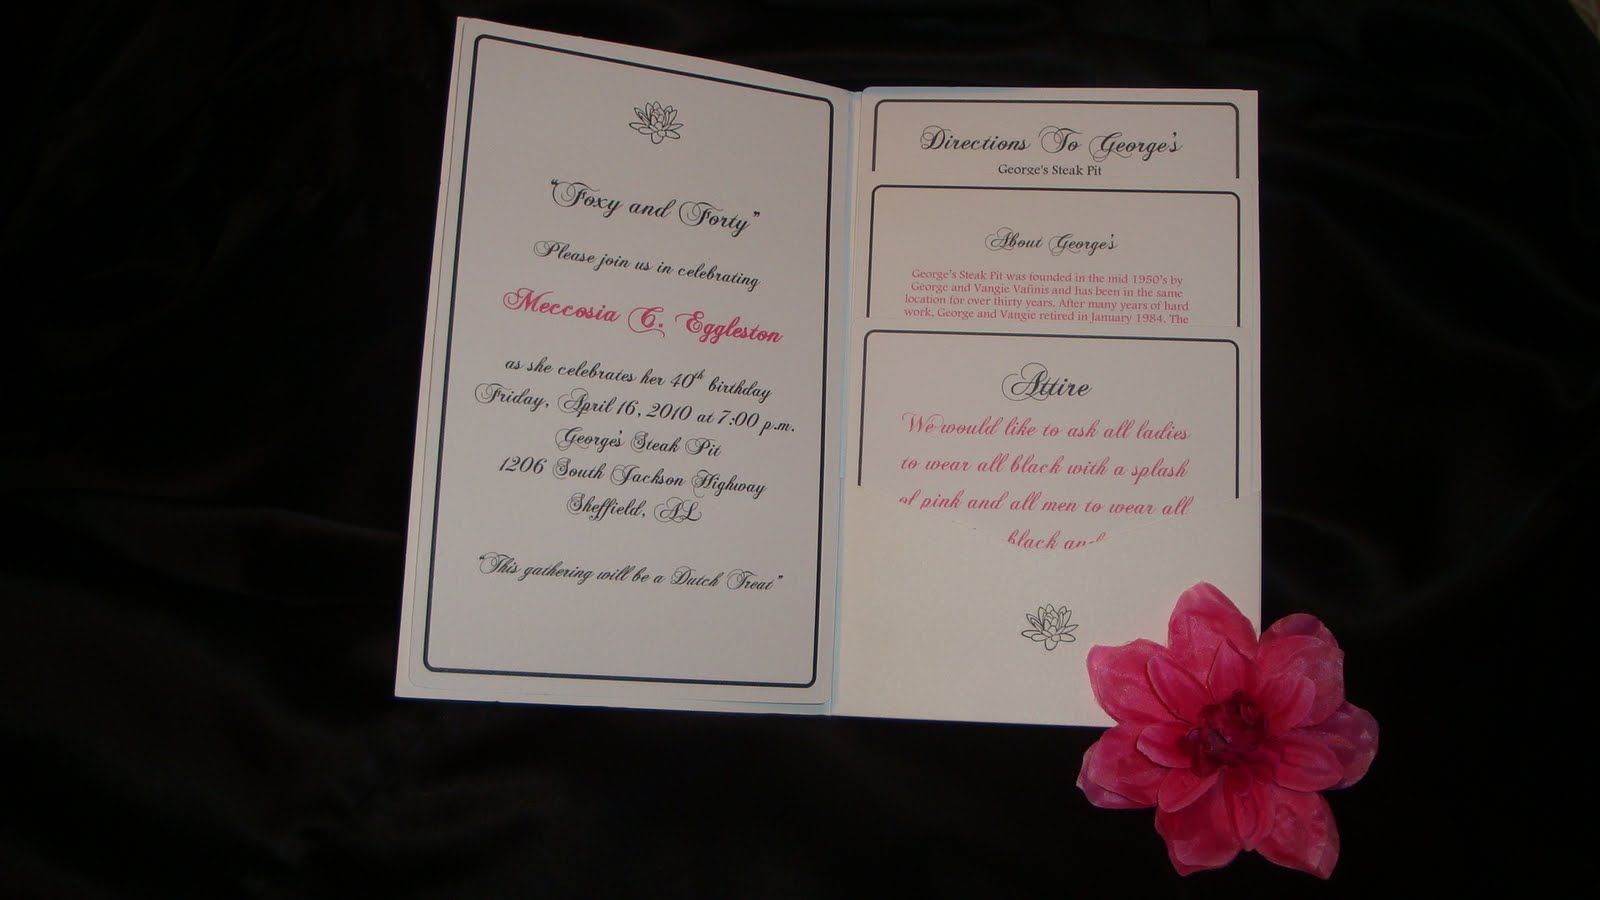 “Foxy and Forty”
Please join us in celebrating
Meccosia C. Eggleston
as she celebrates her 40th birthday
Friday, April 16, 2010 at 7:00 p.m.
George's Steak Pit
1206 South Jackson Highway
Sheffield, AL
“This gathering will be a Dutch Treat”
Directions To George's
George's Steak Pit
About George's
George's Steak Pit was founded in the mid 1950's by
George and Vangie Vafinis and has been in the same
location for over thirty years. After many years of hard
work, George and Vangie retired in January 1984. The
Attire
We would like to ask all ladies
to wear all black with a splash
of pink and all men to wear all
black and